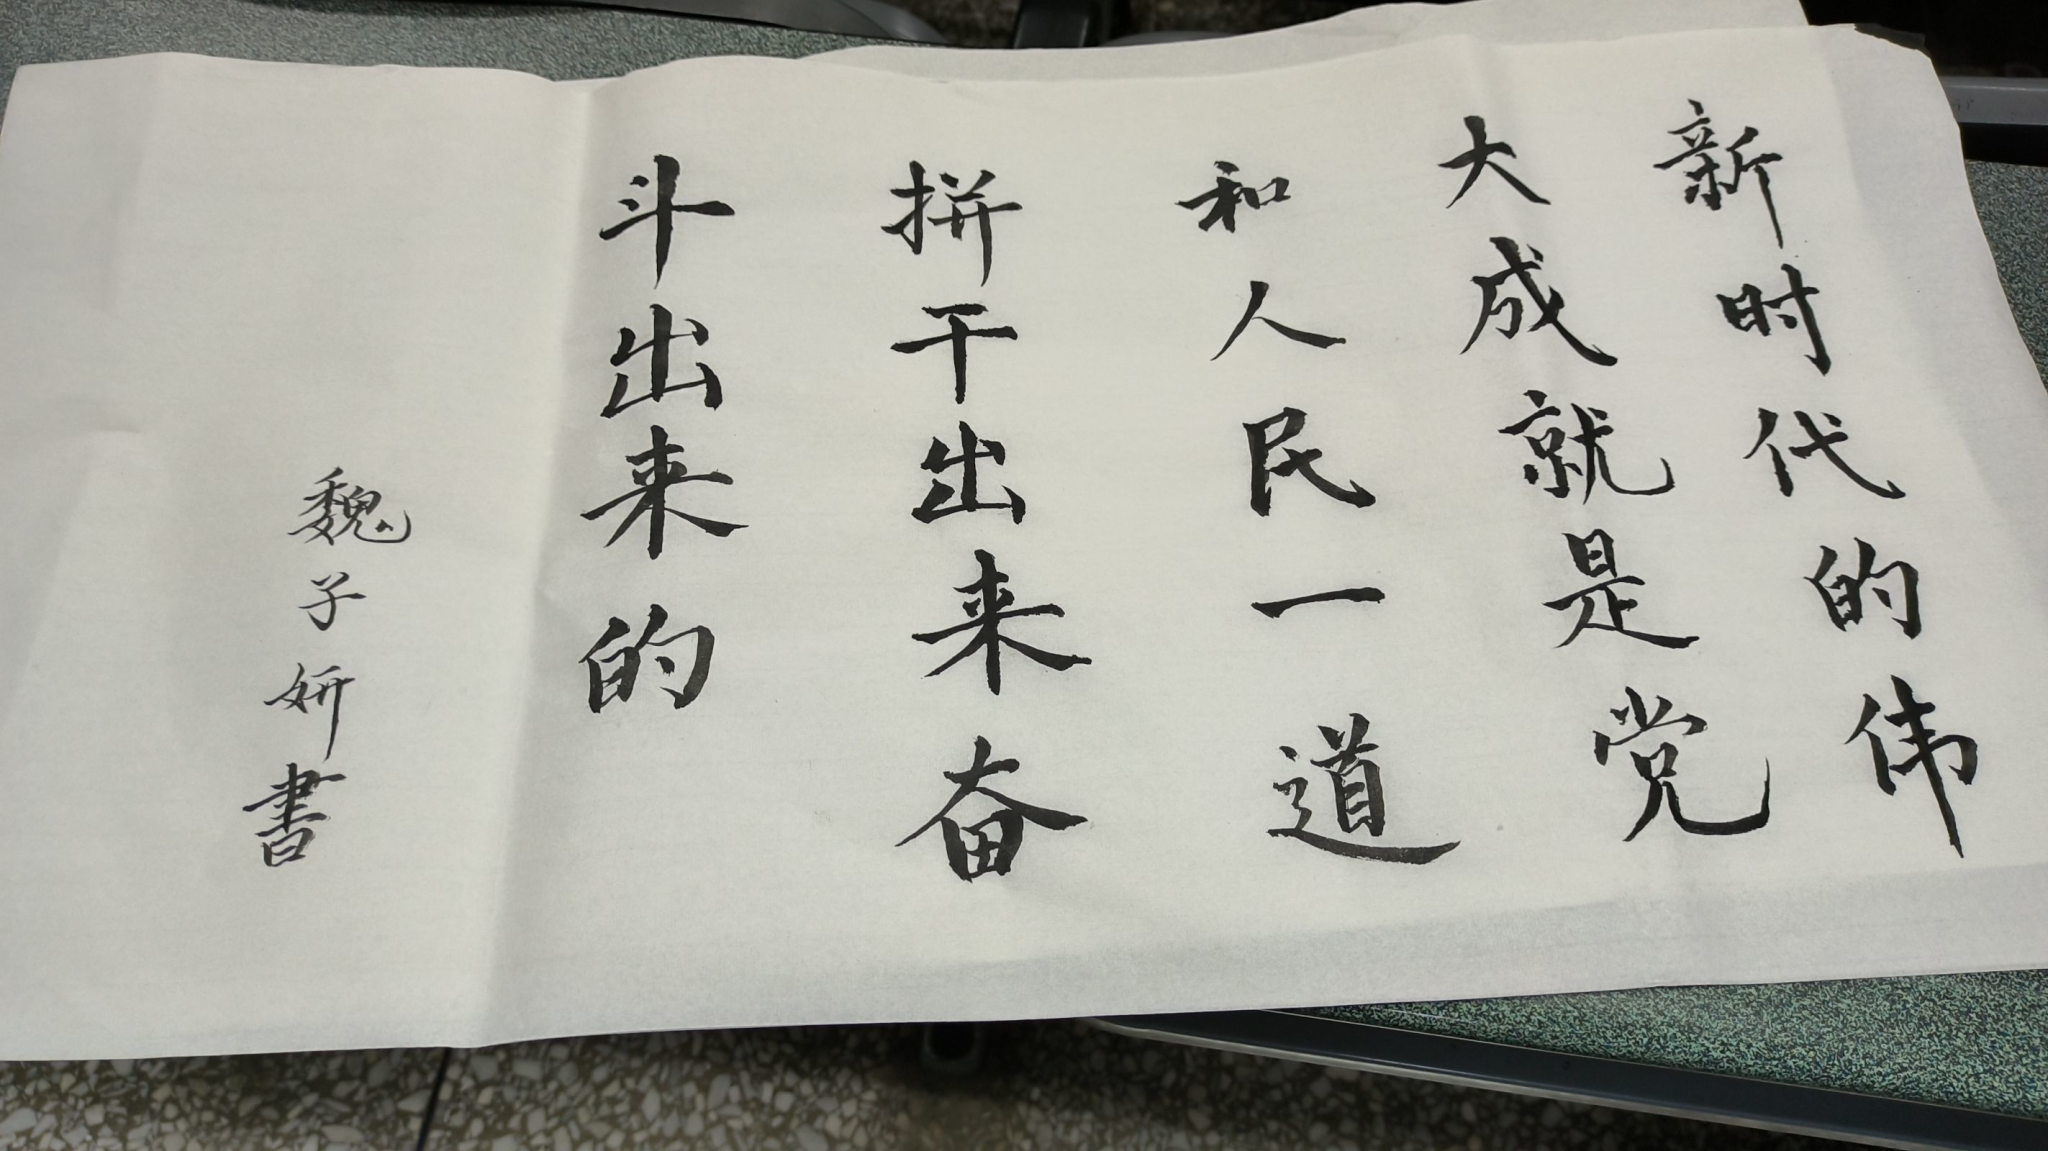 新时代的伟
大成就是党
和人民一道
拼干出来奋
斗出来的
魏子妍書